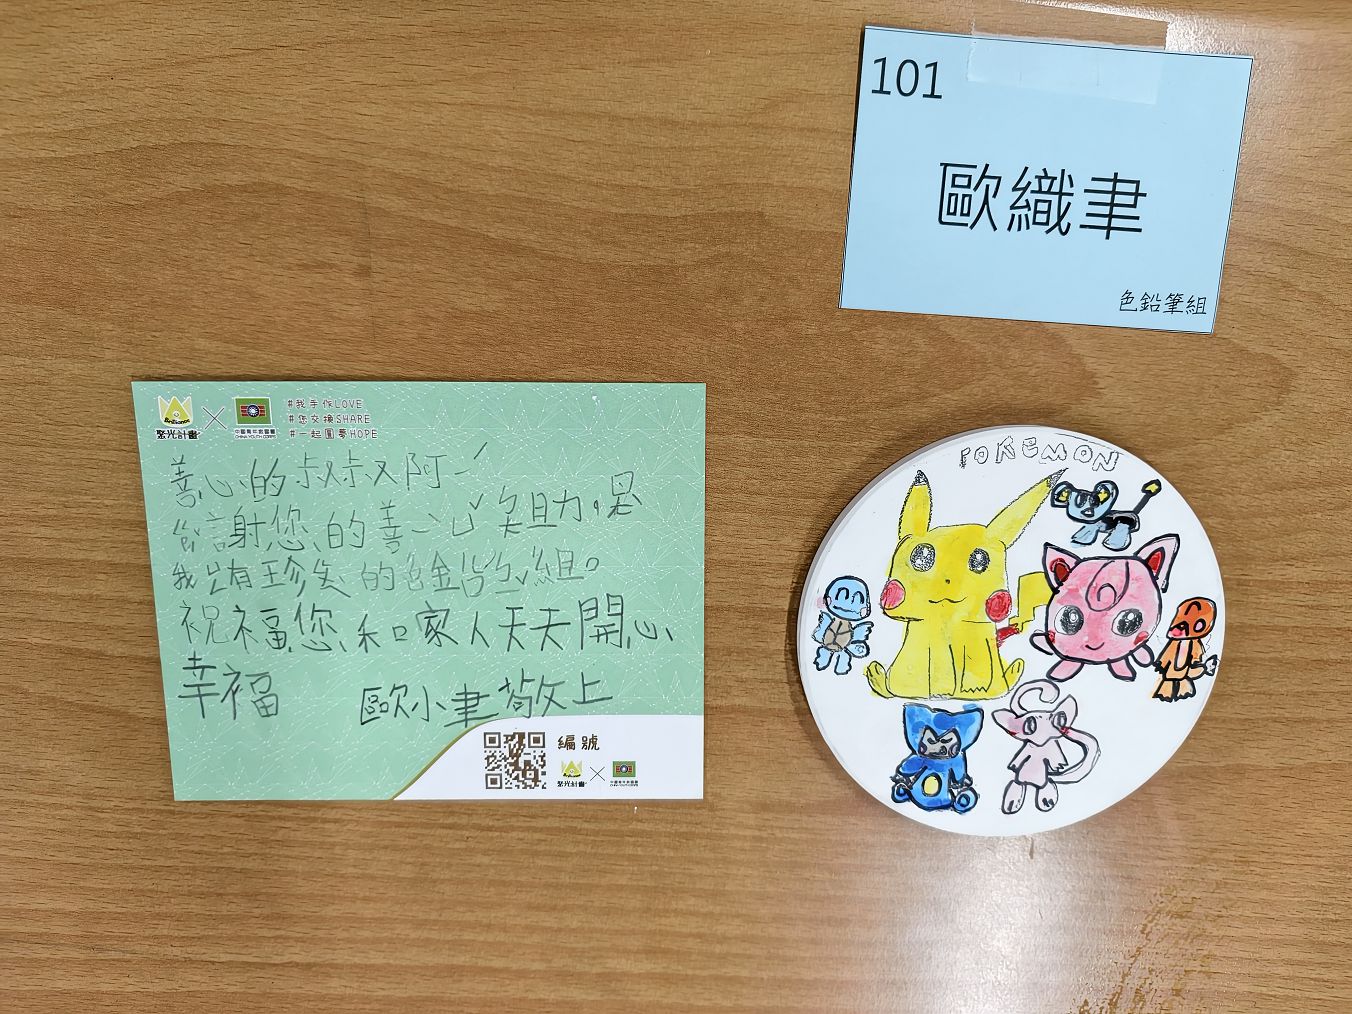 101
歐織聿
色鉛筆組
Brilliance
聚光計畫
×
中國青年救國團
CHINA YOUTH CORPS
#我手作LOVE
#您交換SHARE
#一起圓夢HOPE
善心的叔叔阿
謝您的善心
我 有珍 的 組。
祝福您和家人天天開心
幸福
歐小聿敬上
編號
聚光計畫
×
POKEMON